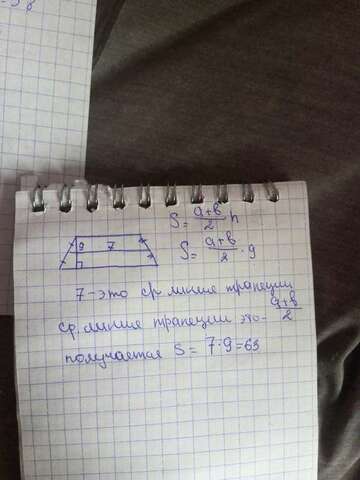 S = (a+b)/2 h
9 7
S = (a+b)/2 · 9
7 - это ср. линия трапеции
ср. линия трапеции это - (a+b)/2
получается S = 7·9 = 63